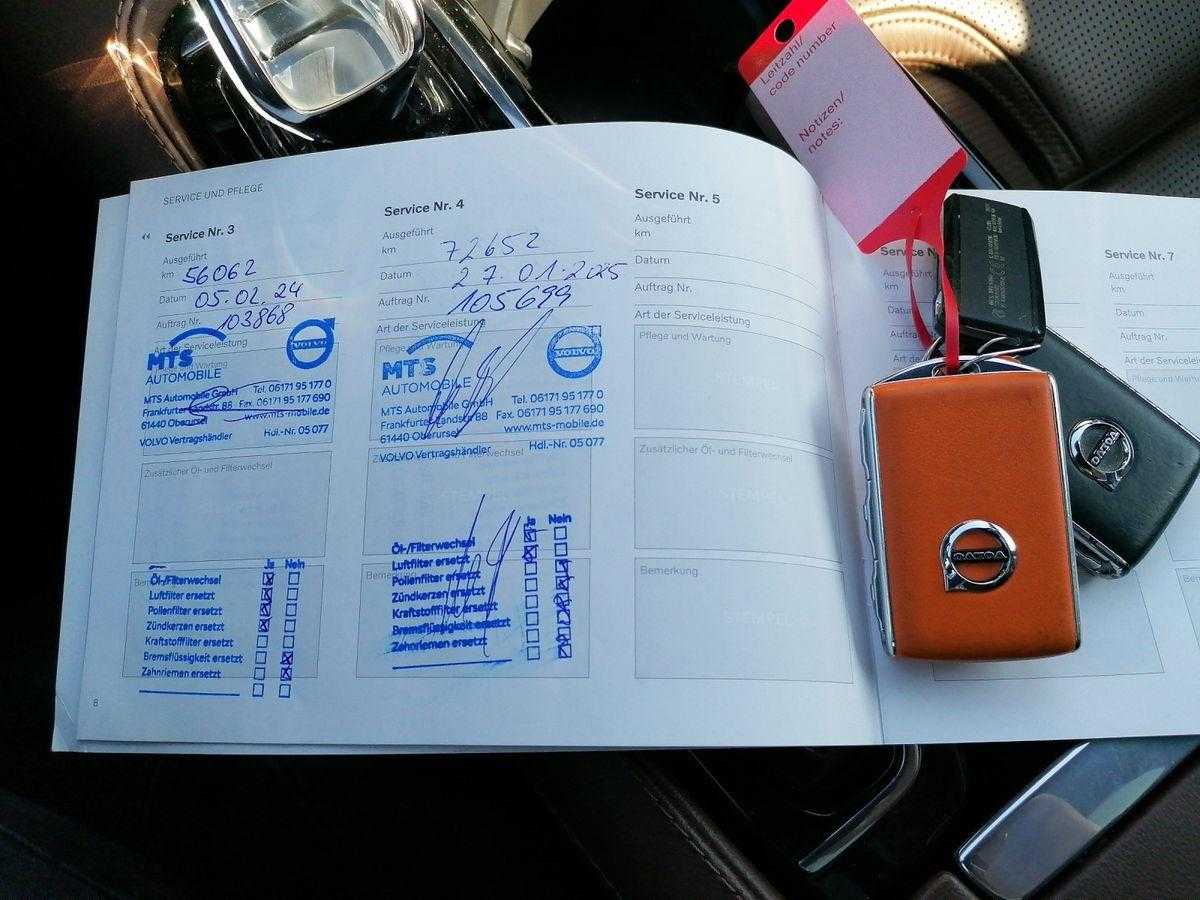 Leitzahl/
code number
Notizen/
notes:
SERVICE UND PFLEGE
Service Nr. 3
Ausgeführt
km 56062
Datum 05.02.24
Auftrag Nr. 103868
Art der Serviceleistung
MTS
AUTOMOBILE
VOLVO
MTS Automobile GmbH Tel. 06171 95 177 0
Frankfurter Landstr. 88 Fax. 06171 95 177 690
61440 Oberursel www.mts-mobile.de
VOLVO Vertragshändler Hdl.-Nr. 05 077
Zusätzlicher Öl- und Filterwechsel
Ja Nein
Öl-/Filterwechsel
Luftfilter ersetzt
Pollenfilter ersetzt
Zündkerzen ersetzt
Kraftstofffilter ersetzt
Bremsflüssigkeit ersetzt
Zahnriemen ersetzt
Service Nr. 4
Ausgeführt
km 72652
Datum 27.01.2025
Auftrag Nr. 105699
Art der Serviceleistung
Pflege und Wartung
MTS
AUTOMOBILE
VOLVO
MTS Automobile GmbH Tel. 06171 95 177 0
Frankfurter Landstr 88 Fax. 06171 95 177 690
61440 Oberursel www.mts-mobile.de
VOLVO Vertragshändler Hdl.-Nr. 05 077
Ja Nein
Öl-/Filterwechsel
Luftfilter ersetzt
Pollenfilter ersetzt
Zündkerzen ersetzt
Kraftstofffilter ersetzt
Bremsflüssigkeit ersetzt
Zahnriemen ersetzt
Service Nr. 5
Ausgeführt
km
Datum
Auftrag Nr.
Art der Serviceleistung
Pflege und Wartung
STEMPEL
Zusätzlicher Öl- und Filterwechsel
STEMPEL
Bemerkung
STEMPEL
Service Nr. 7
Ausgeführt
km
Datum
Auftrag Nr.
Art der Serviceleis
Pflege und Wartung
VOLVO
VOLVO
8